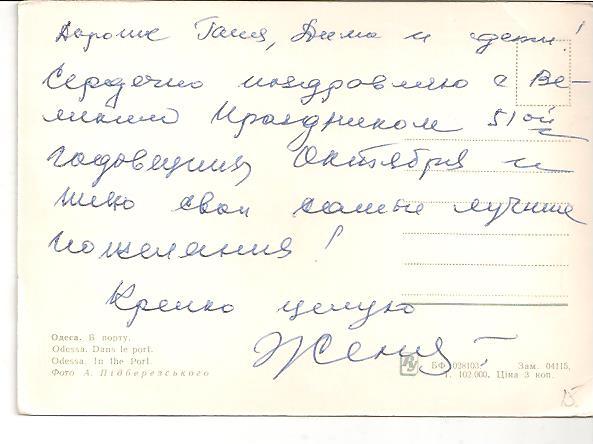 Дорогие Галя, Дима и дети!
Сердечно поздравляю с Ве-
ликим Праздником 51ой
годовщины Октября и
шлю свои самые лучшие
пожелания!
Крепко целую
Женя
Одеса. В порту.
Odessa. Dans le port.
Odessa. In the Port.
Фото А. Підберезського
БФ 02810З. Зам. 04115,
Т. 102.000. Ціна 3 коп.